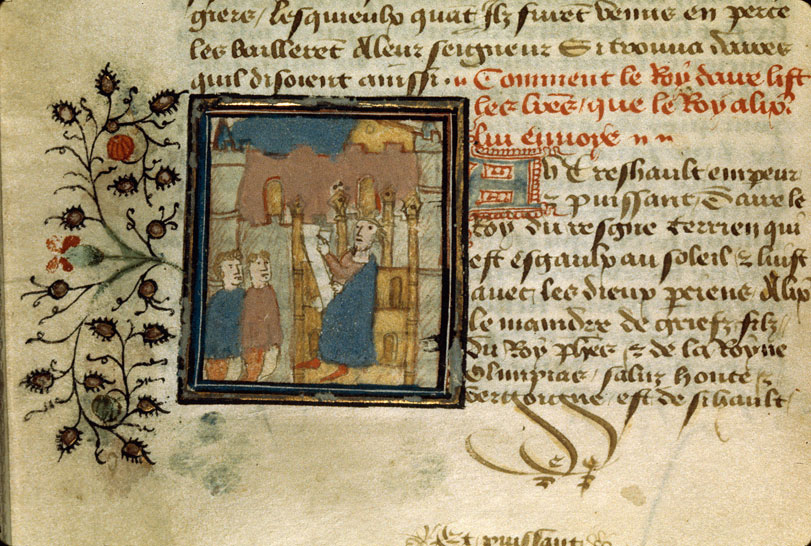 giers / lesquieulx quāt Jlz furēt venus en perce
les baillerēt A leur seigneur Si trouva daires
quil disoient ainssi . Comment le Roy daire list
les lr̄es / que le Roy alixr̄
lui envoye
Au treshault empeur
& puissant / Daire le
Roy du resgne terrien qui
est esgaulx au soleil / & luist
avec les dieux persiens / Alix
le maindre de griefz filz /
du Roy phēs & de la Royne
Olimpias / salut honte &
vergoigne / est de sihault /
Et puissant